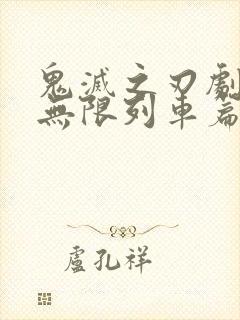 鬼滅之刃劇
無限列車篇
盧孔祥